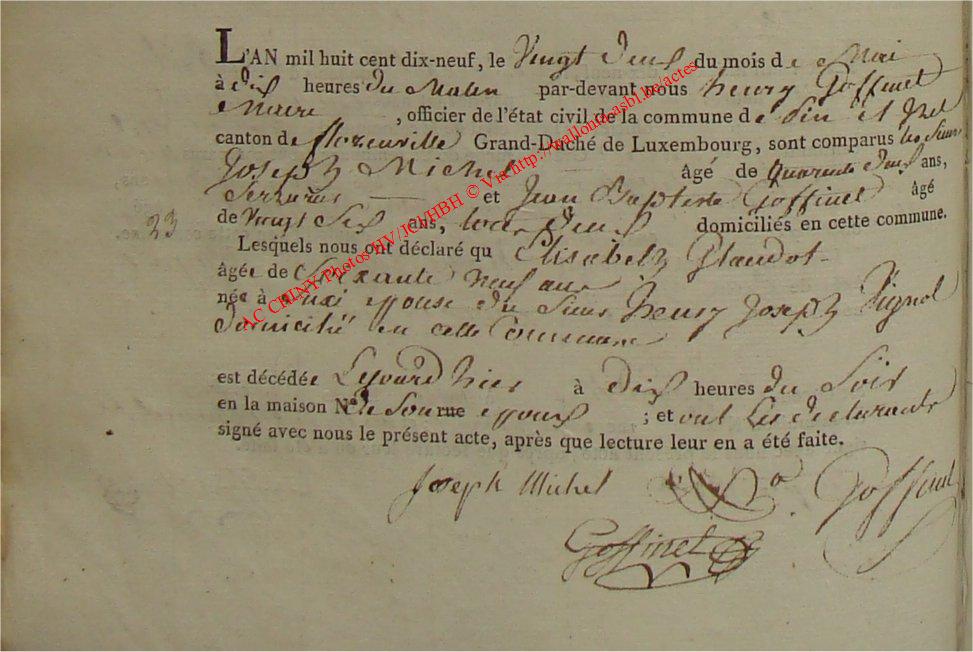 L'AN mil huit cent dix-neuf, le Vingt deux du mois de Mai
à dix heures du Matin par-devant nous henry Goffinet
Maire, officier de l'état civil de la commune de Pin et Izel
canton de florenville Grand-Duché de Luxembourg, sont comparus les Sieurs
Joseph Michel âgé de quarante deux ans,
et Jean Baptiste Goffinet âgé
de Vingt Six ans, tous deux domiciliés en cette commune.
23
Lesquels nous ont déclaré qu Elisabeth Glaudot
âgée de Soixante neuf ans
née à epouse du Sieur henry Joseph Pignol
domicilié en cette Commune
est décédée Lejourd'hier à dix heures du Soir
en la maison No. de Son rue epoux ; et ont Les declarants
signé avec nous le présent acte, après que lecture leur en a été faite.
Joseph Michel Goffinet
Goffinet
AC CHINY Photos HV/JCM/HBH © Via http://wallondeasbl.be/actes